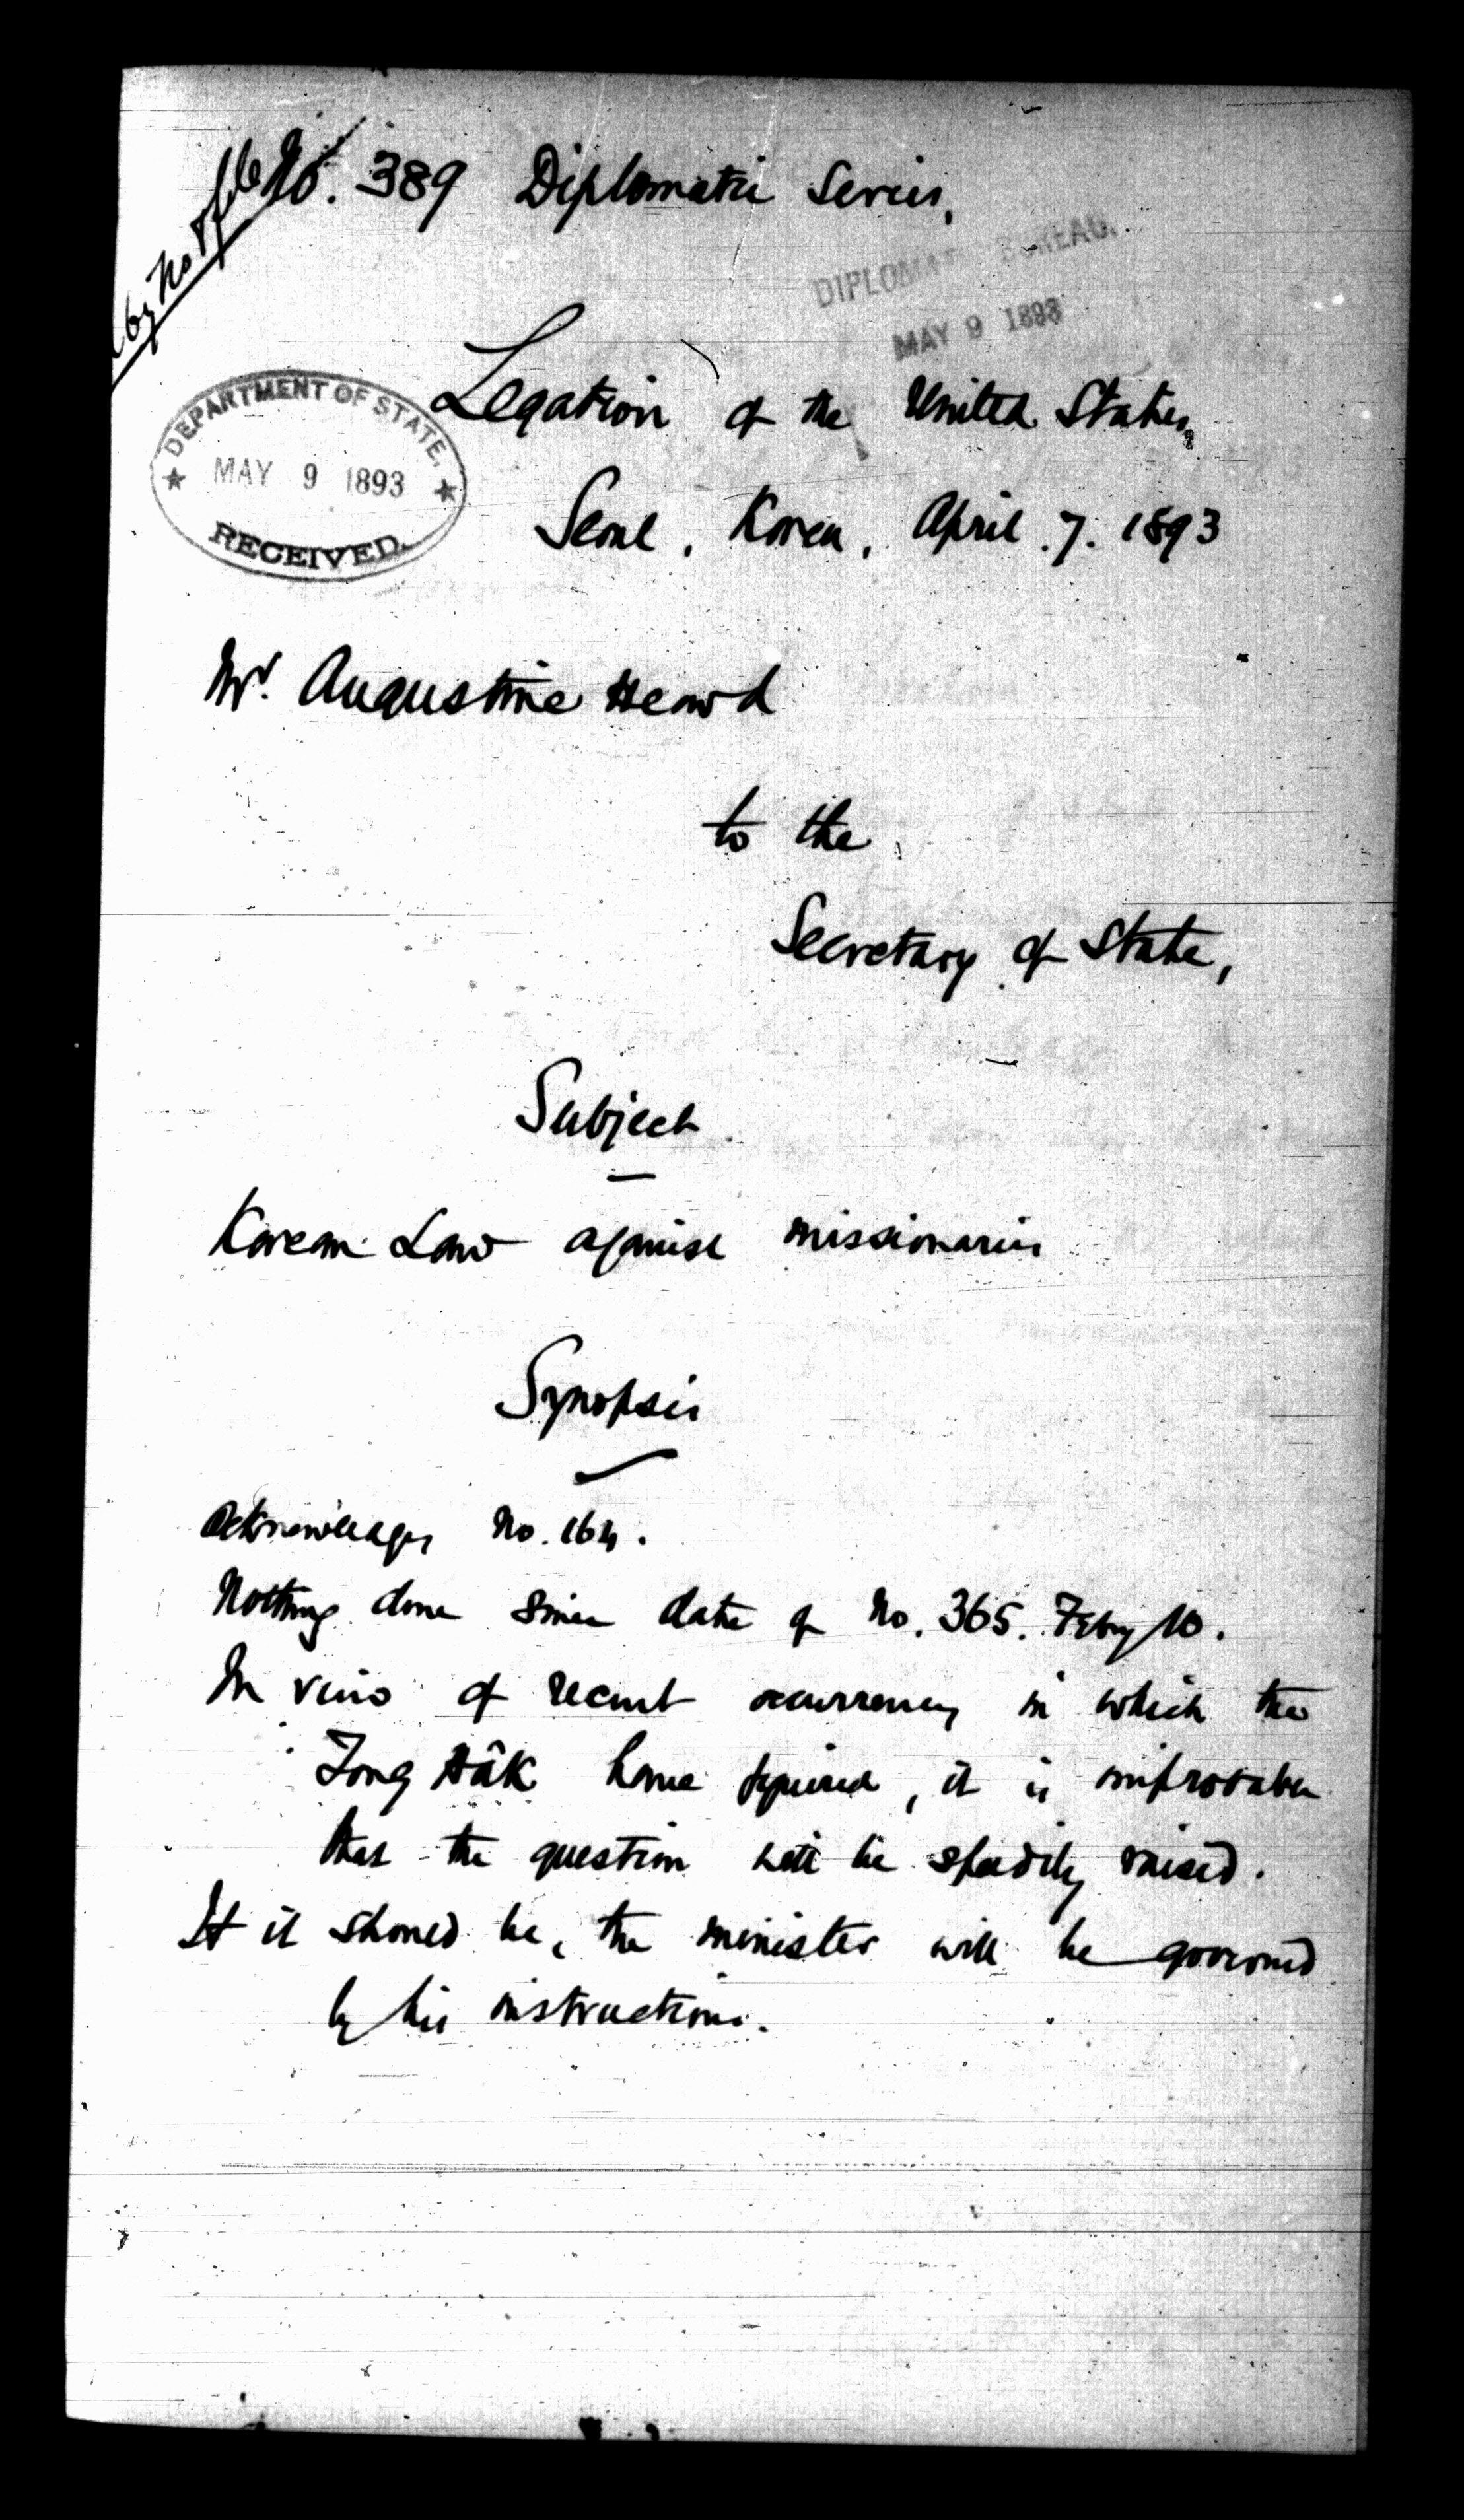 No. 389 Diplomatic Series,
DIPLOMATIC BUREAU,
MAY 9 1893
DEPARTMENT OF STATE,
MAY 9 1893
RECEIVED.
Legation of the United States,
Seoul, Korea, April 7. 1893
Mr. Augustine Heard
to the
Secretary of State,
Subject
Korean Law against missionaries
Synopsis
Acknowledges No. 164.
Nothing done since date of No. 365. Feby 10.
In view of recent occurrences in which the
Tong Hâk have figured, it is improbable
that the question will be speedily raised.
If it should be, the minister will be governed
by his instructions.